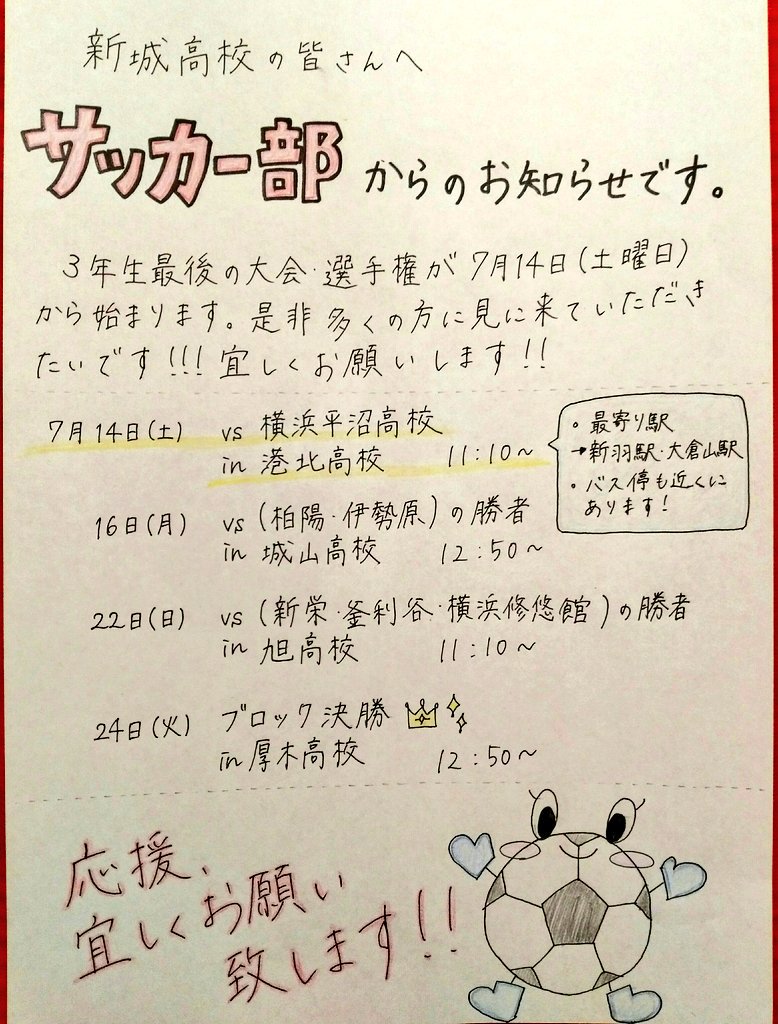 新城高校の皆さんへ
サッカー部からのお知らせです。
3年生最後の大会・選手権が7月14日(土曜日)
から始まります。是非多くの方に見に来ていただき
たいです!!!宜しくお願いします!!
7月14日(土) vs 横浜平沼高校
in 港北高校 11:10~
。最寄り駅
→新羽駅・大倉山駅
。バス停も近くに
あります!
16日(月) vs (柏陽・伊勢原)の勝者
in 城山高校 12:50~
22日(日) vs (新栄・釜利谷・横浜修悠館)の勝者
in 旭高校 11:10~
24日(火) ブロック決勝
in 厚木高校 12:50~
応援、
宜しくお願い
致します!!